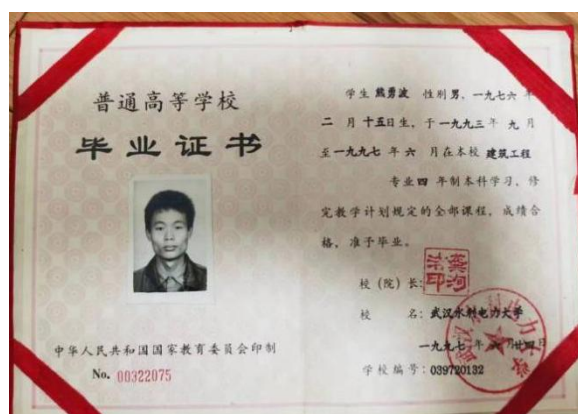 普通高等学校
毕业证书
中华人民共和国国家教育委员会印制
No. 00322075
学生 熊勇波 性别 男，一九七六 年
二 月 十五日生，于一九九三 年 九 月
至一九九七 年 六 月在本校 建筑工程
专业 四 年制本科学习，修
完教学计划规定的全部课程，成绩合
格，准予毕业。
校（院）长：
校 名：武汉水利电力大学
一九九七 年 六 月廿四日
学校编号：039720132